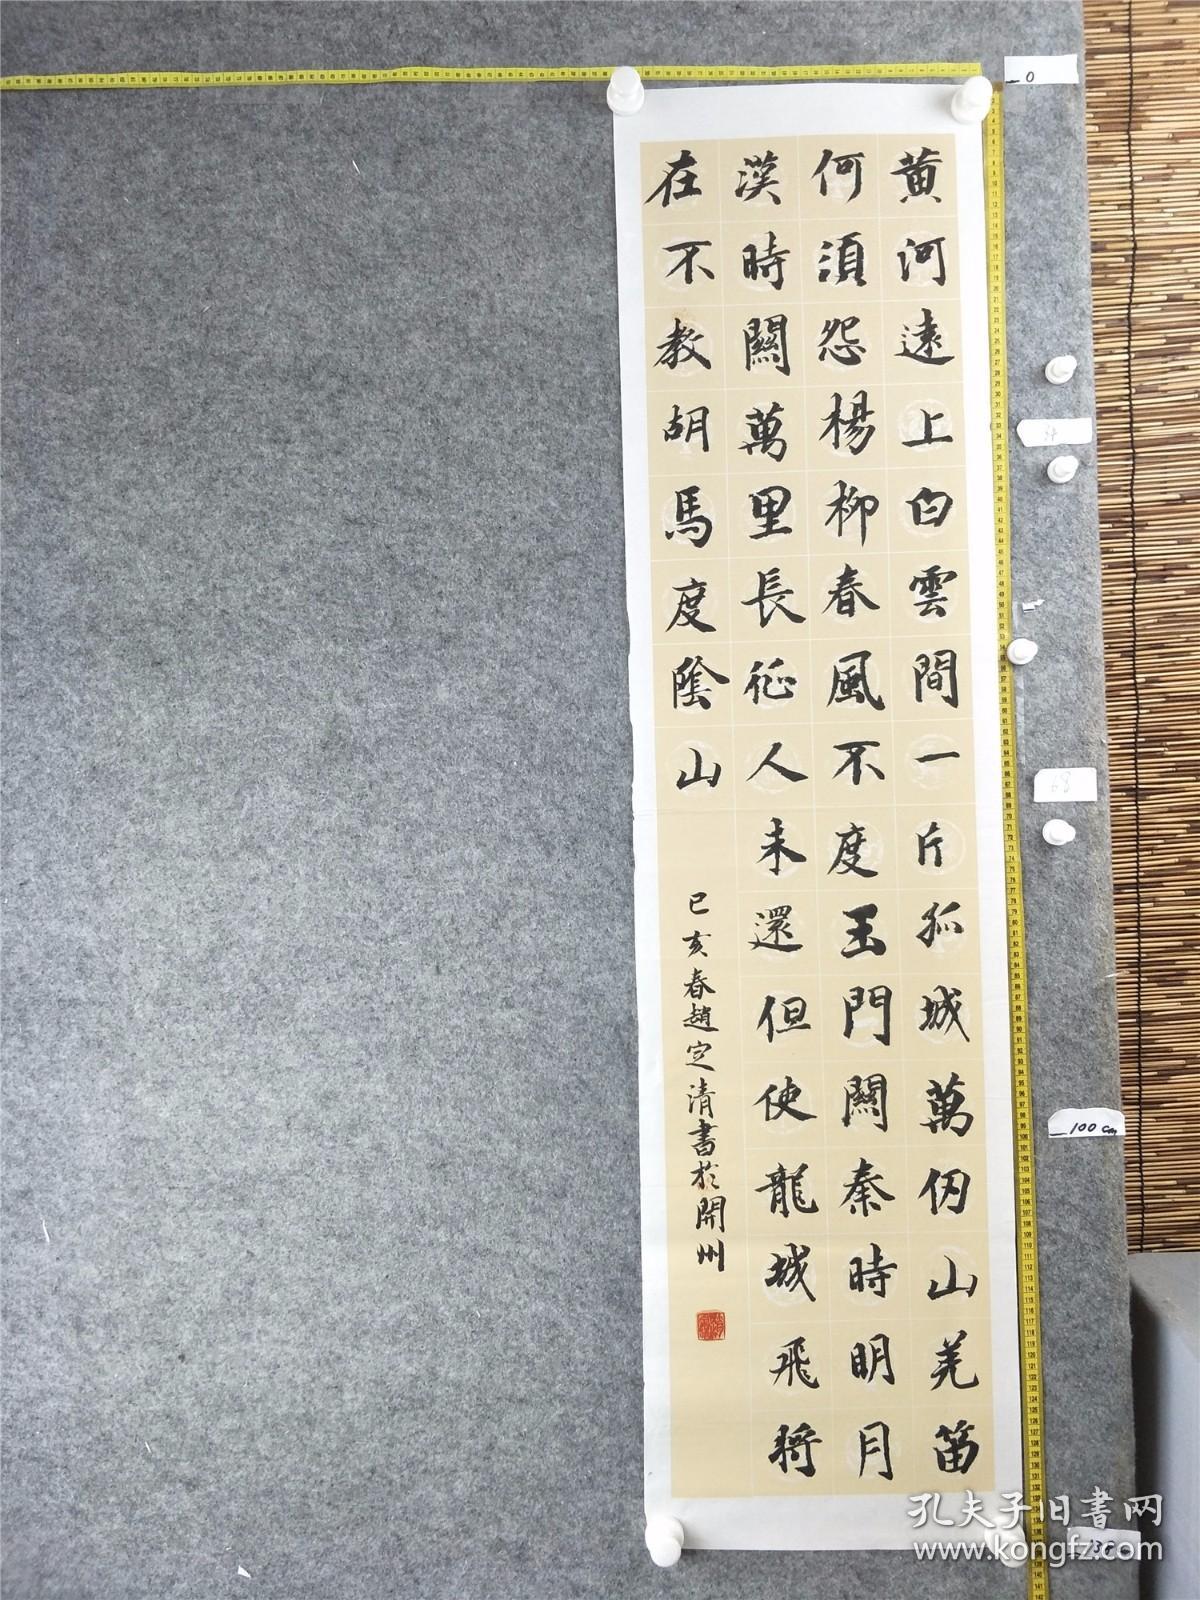 黄河遠上白雲間一片孤城萬仞山羌笛
何須怨楊柳春風不度玉門關秦時明月
漢時關萬里長征人未還但使龍城飛將
在不教胡馬度陰山
己亥春趙定清書於開州
0
34
68
100cm
孔夫子旧書网
www.kongfz.com